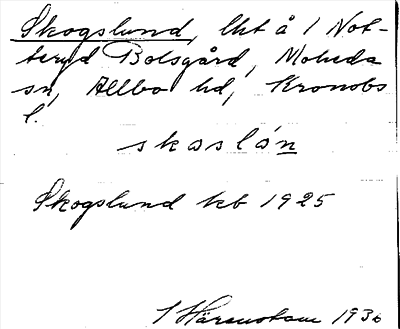 Skogslund, lht å 1 Not-
teryd Bolsgård, Moheda
sn, Allbo hd, Kronobs
l.
skoslón
Skogslund kb 1925
1936